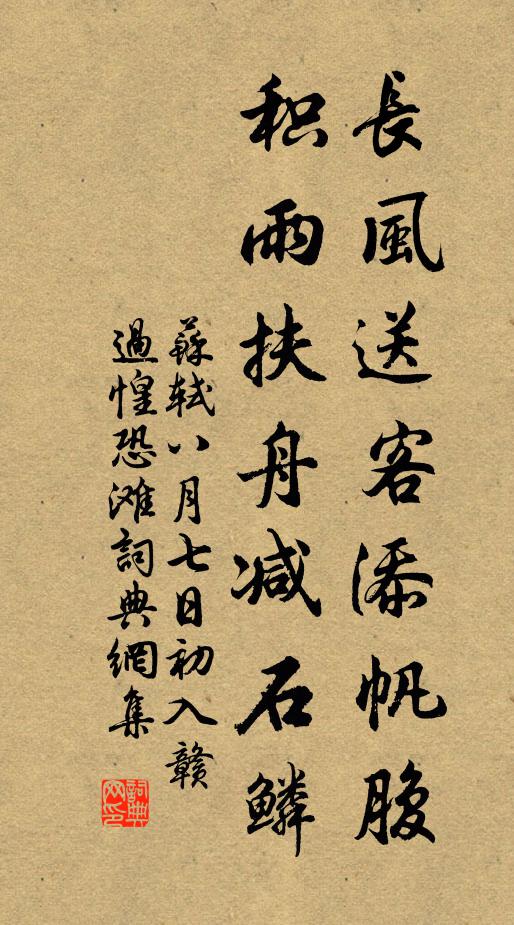 長風送客添帆腹
积雨扶舟减石鳞
蘇軾八月七日初入贛
過惶恐滩詞典網集
詞典网印